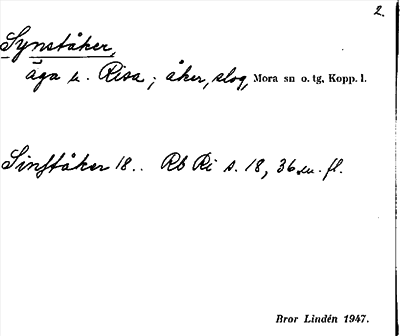 2.
Synståker,
äga u. Risa; åker, slog, Mora sn o. tg, Kopp. l.
Sinståker 18.. Rb Ri s. 18, 36 m. fl.
Bror Lindén 1947.